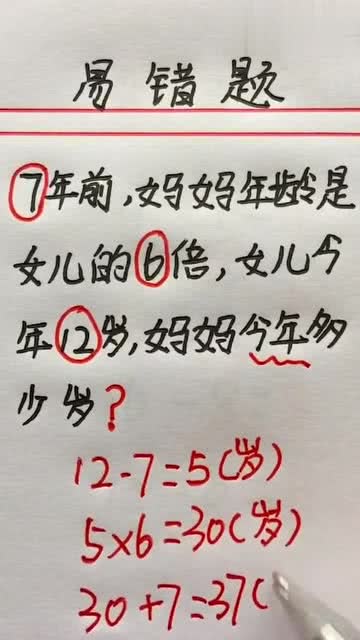 易错题
7年前,妈妈年龄是
女儿的6倍,女儿今
年12岁,妈妈今年多
少岁?
12-7=5(岁)
5×6=30(岁)
30+7=37(